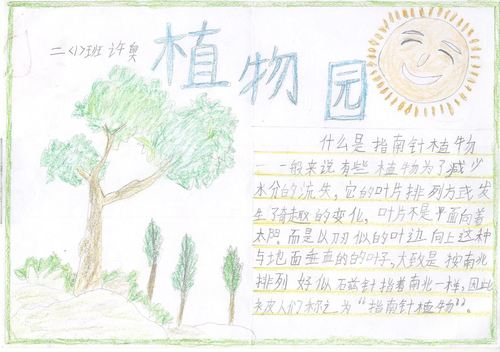 二〈1〉班 许奥
植物园
什么是指南针植物
一一般来说有些植物为了减少
水分的流失,它的叶片排列方式发
生了有趣的变化,叶片不是平面向着
太阳而是以刀似的叶边向上这种
与地面垂直的的叶子,大致是按南北
排列好似石兹针指着南北一样,因此
人们称之为“指南针植物”。